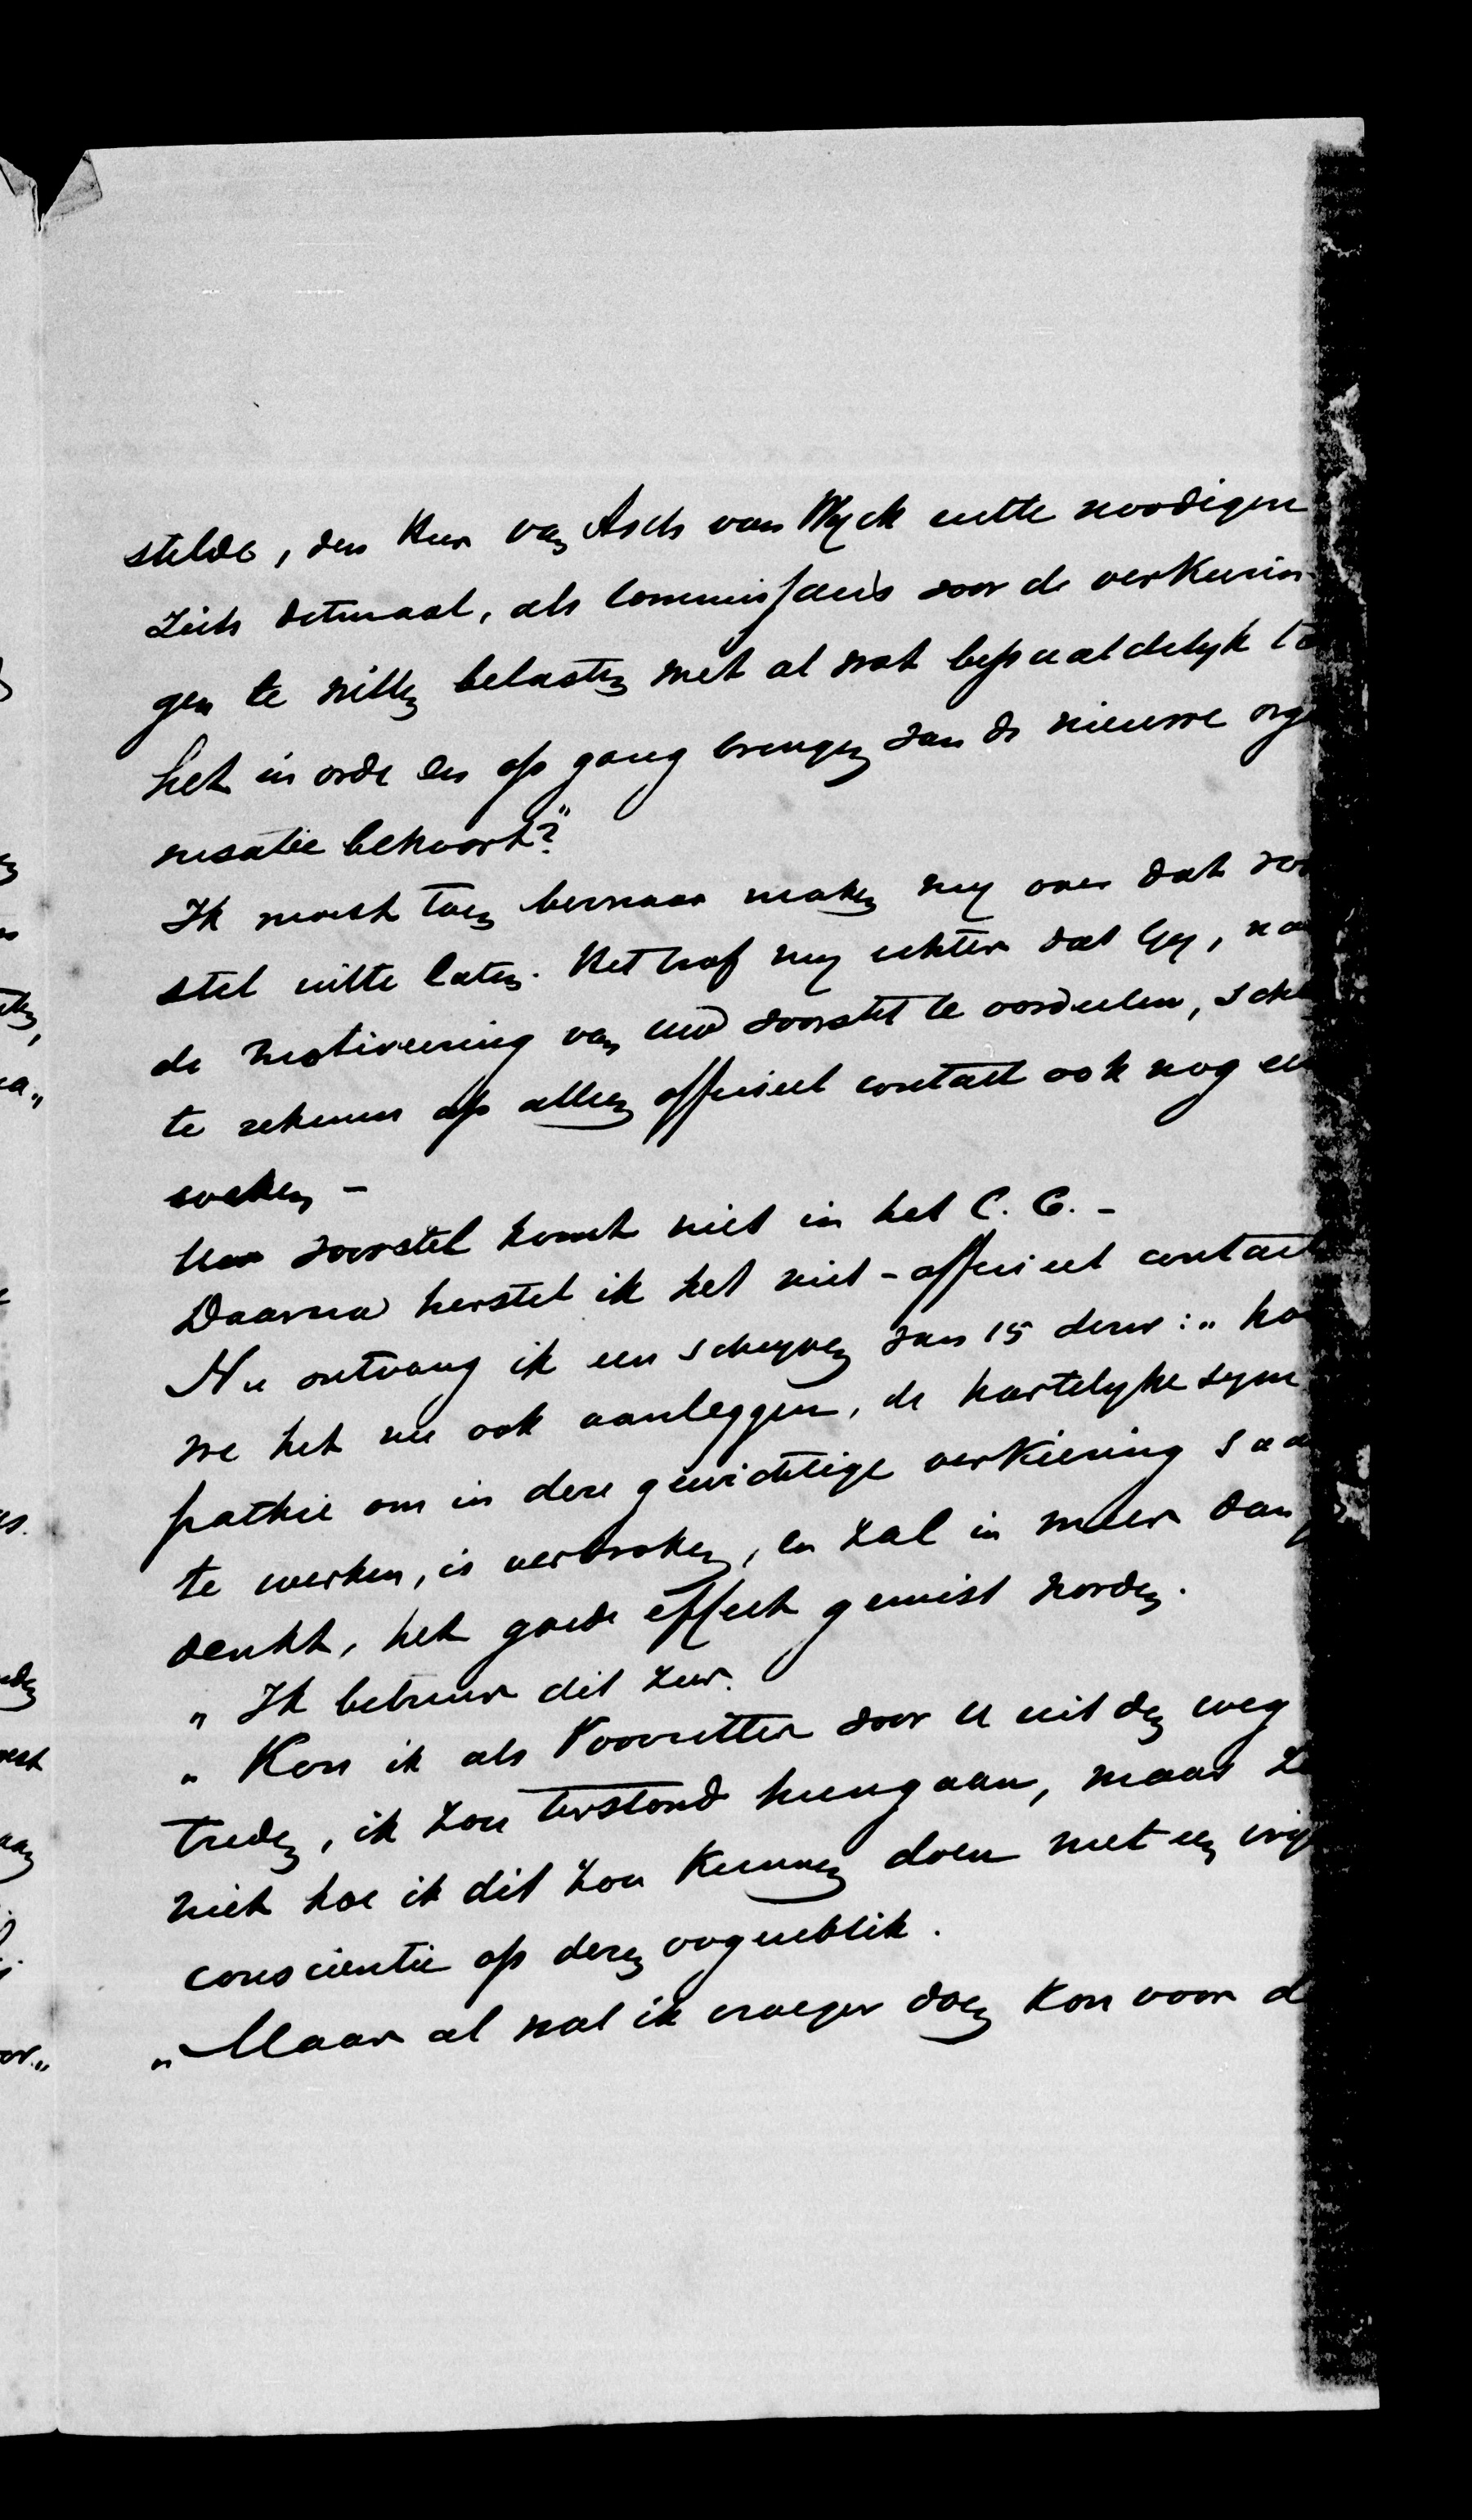 stelde, den Heer van Asch van Wyck uitte noodigen
Zich ditmaal, als commissaris voor de verkiezin-
gen te willen belasten met al wat bepaaldelyk to
het in orde en op gang brengen van de nieuwe orga
nisatie behoort?"
Ik moest toen bezwaar maken my over dat voor
stel uitte laten. Het trof my echter dat Gy, na
de motiveering van Uw voorstel te oordeelen, sche
te rekenen op alleen officieel contact ook nog en
weken -
Uw voorstel komt niet in het C. C. -
Daarna herstel ik het niet-officieel contact
Nu ontvang ik een schryven van 15 dezer: „ hoe
we het nu ook aanleggen, de hartelyke sym
pathie om in deze gewichtige verkiezing saam
te werken, is verbroken, en zal in meer dan
denkt, het goede effect gemist worden.
„ Ik betreur dit zeer.
„ Kon ik als Voorzitter voor U uit den weg
treden, ik zou terstond heengaan, maar Z
niet hoe ik dit zou kunnen doen met een vrij
conscientie op dezen oogenblik.
„ Maar al wat ik vroeger doen kon voor d